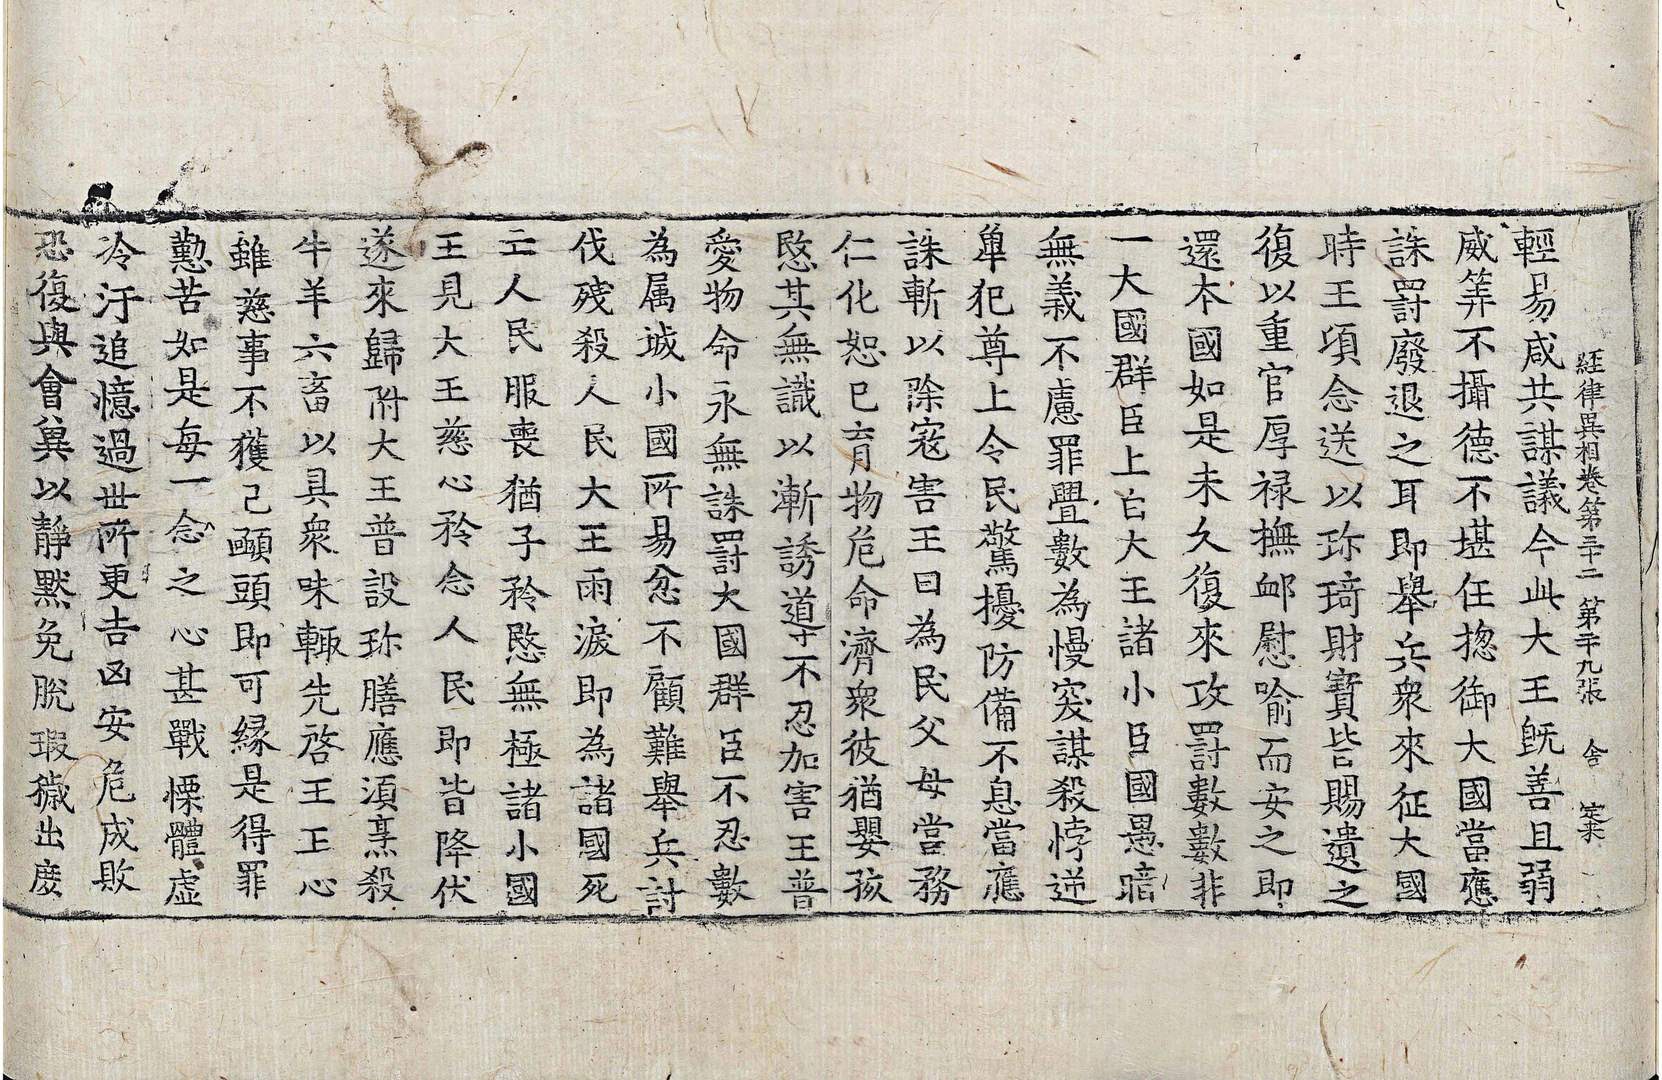 經律異相卷第三十二 第二十九張 舍 㝎來
輕易咸共謀議今此大王旣善且弱
威筭不攝德不堪任揔御大國當應
誅罸廢退之耳即舉兵衆來征大國
時王項念送以珎琦財寶皆賜遺之
復以重官厚禄撫䘏慰喻而安之即
還本國如是未久復來攻罸數數非
一大國群臣上白大王諸小臣國愚暗
無義不慮罪舋數為慢突謀殺悖逆
皐犯尊上令民驚擾防備不息當應
誅斬以除寇害王曰為民父母當務
仁化恕己育物危命濟衆彼猶嬰孩
愍其無識以漸誘導不忍加害王普
愛物命永無誅罸大國群臣不忍數
為属城小國所易忿不顧難舉兵討
伐殘殺人民大王雨淚即為諸國死
亡人民服喪猶子矜愍無極諸小國
王見大王慈心矜念人民即皆降伏
遂來歸附大王普設珎膳應湏烹殺
牛羊六畜以具衆味輙先啓王王心
雖慈事不獲己頤頭即可縁是得罪
懃苦如是每一念之心甚戰慄體虚
冷汙追憶過世所更吉凶安危成敗
恐復與會兾以靜黙免脫瑕穢出度